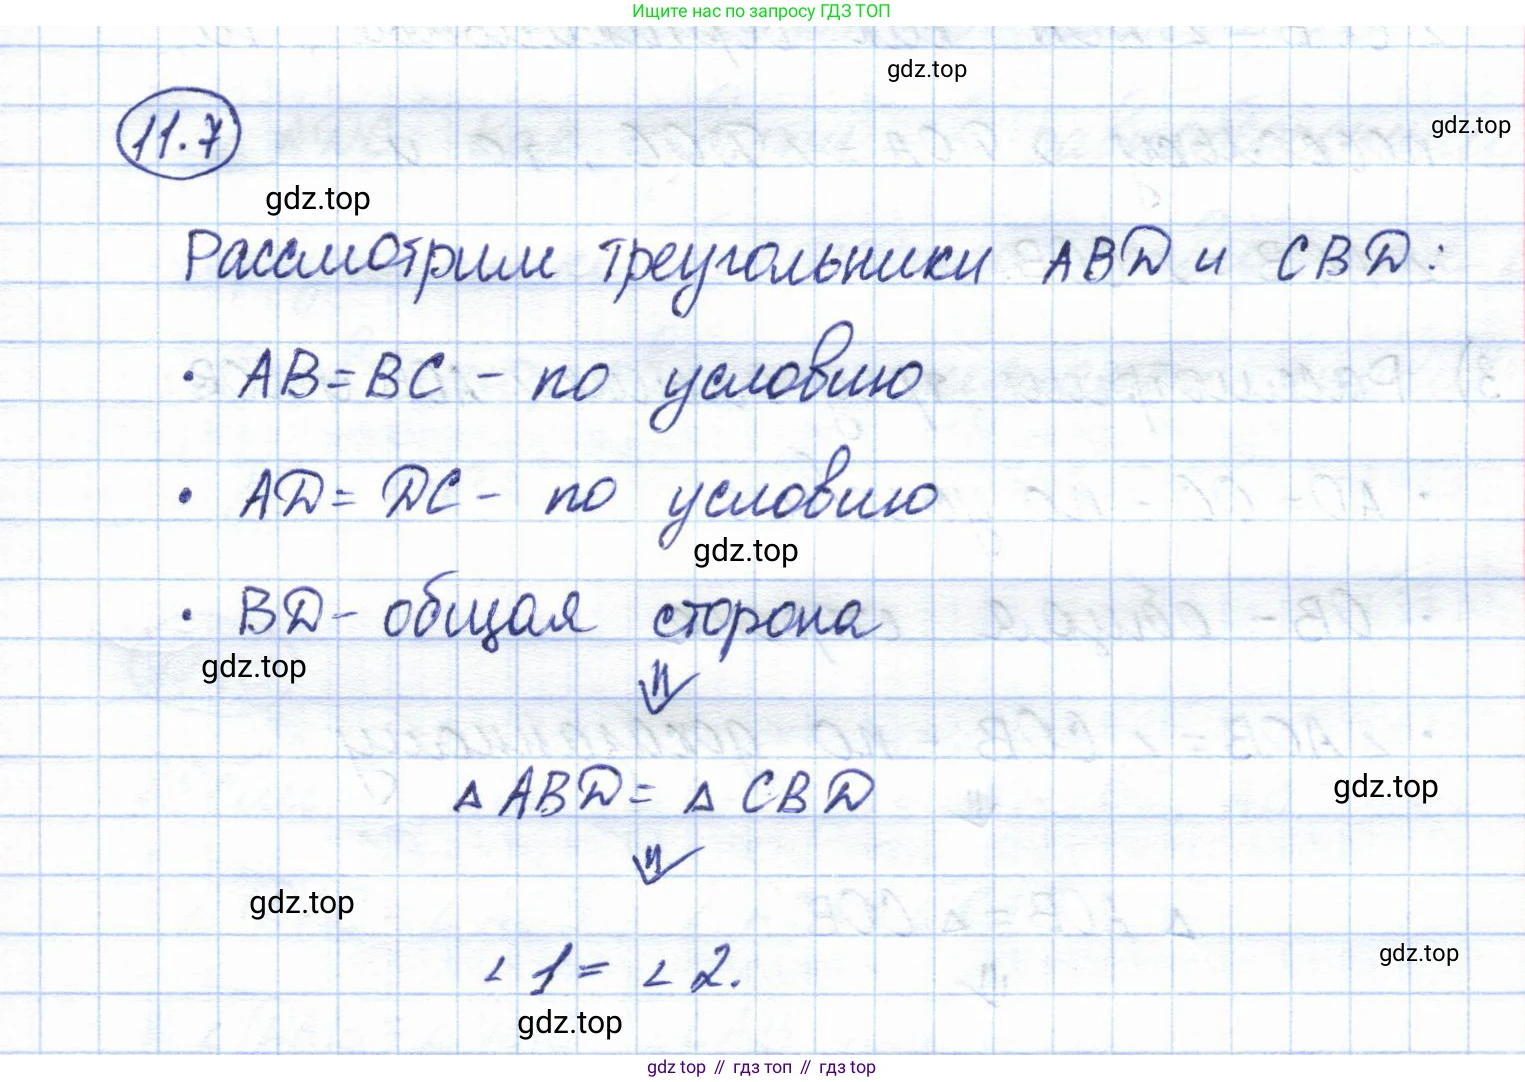 Ищите нас по запросу ГДЗ ТОП
gdz.top
gdz.top
11.7
gdz.top
Рассмотрим треугольники ABD и CBD:
• AB=BC - по условию
• AD=DC - по условию
gdz.top
• BD - общая сторона
gdz.top
⇓
△ABD=△CBD
gdz.top
⇓
gdz.top
gdz.top
∠1=∠2.
gdz.top
gdz top // гдз топ // gdz top